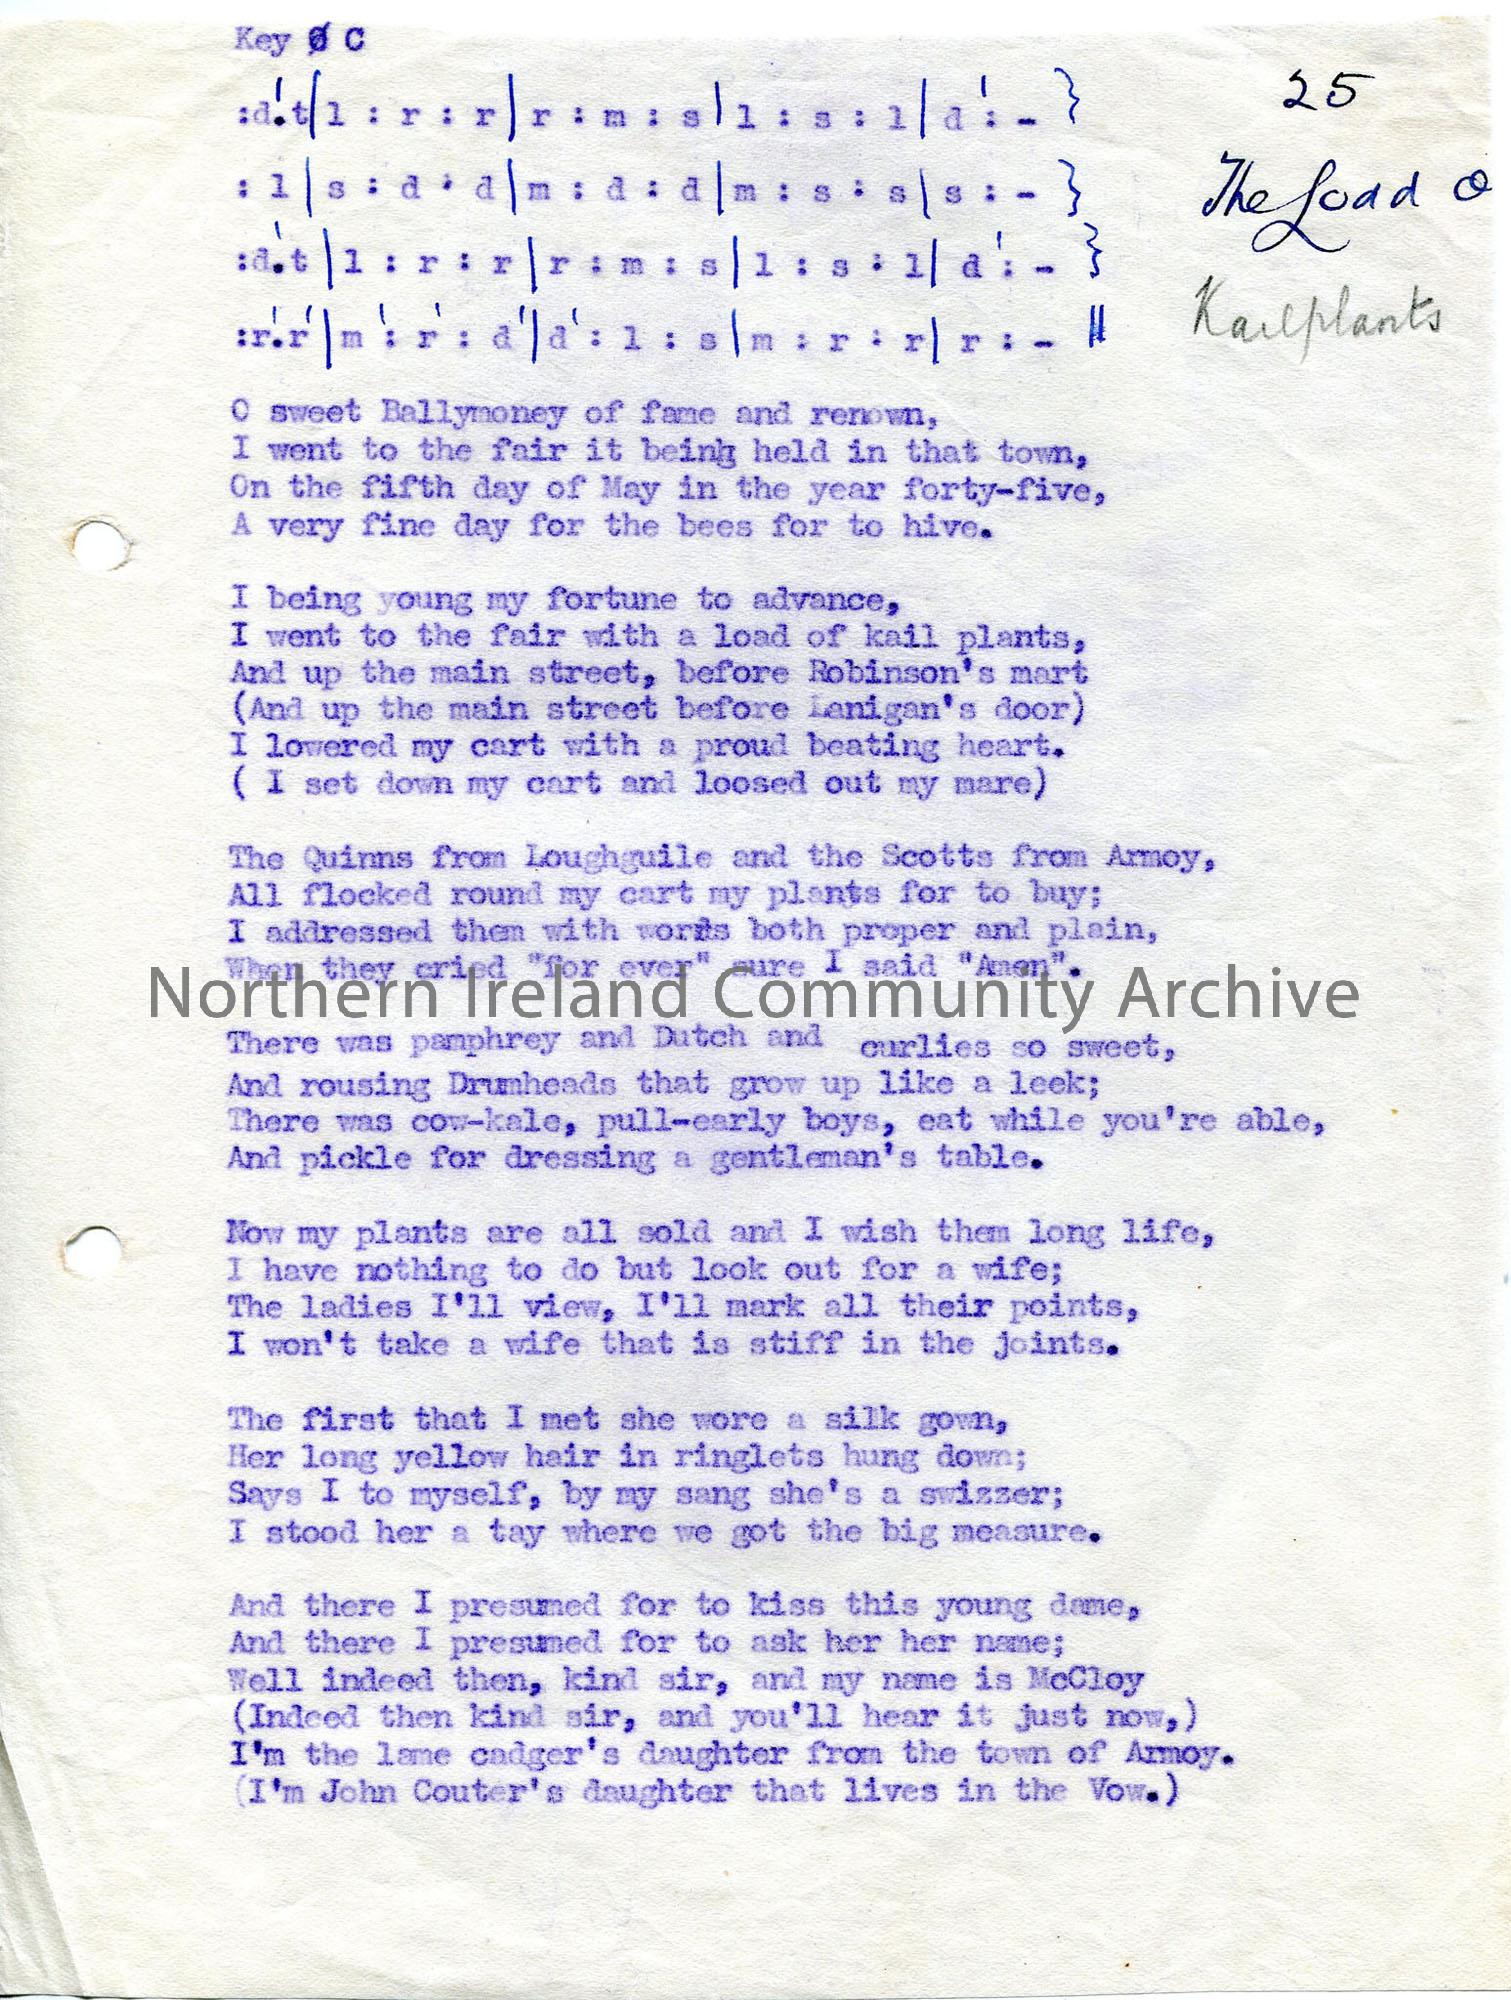 Key C
25
:d'.t|l : r : r|r : m : s|l : s : l|d' : - }
The Load O
: l|s : d : d|m : d : d|m : s : s|s : - }
:d'.t|l : r : r|r : m : s|l : s : l|d' : - }
Kailplants
:r'.r'|m' : r' : d'|d' : l : s|m : r : r|r : - ||
O sweet Ballymoney of fame and renown,
I went to the fair it being held in that town,
On the fifth day of May in the year forty-five,
A very fine day for the bees for to hive.
I being young my fortune to advance,
I went to the fair with a load of kail plants,
And up the main street, before Robinson's mart
(And up the main street before Lanigan's door)
I lowered my cart with a proud beating heart.
( I set down my cart and loosed out my mare)
The Quinns from Loughguile and the Scotts from Armoy,
All flocked round my cart my plants for to buy;
I addressed them with words both proper and plain,
When they cried "for ever" sure I said "Amen".
Northern Ireland Community Archive
There was pamphrey and Dutch and curlies so sweet,
And rousing Drumheads that grow up like a leek;
There was cow-kale, pull-early boys, eat while you're able,
And pickle for dressing a gentleman's table.
Now my plants are all sold and I wish them long life,
I have nothing to do but look out for a wife;
The ladies I'll view, I'll mark all their points,
I won't take a wife that is stiff in the joints.
The first that I met she wore a silk gown,
Her long yellow hair in ringlets hung down;
Says I to myself, by my sang she's a swizzer;
I stood her a tay where we got the big measure.
And there I presumed for to kiss this young dame,
And there I presumed for to ask her her name;
Well indeed then, kind sir, and my name is McCloy
(Indeed then kind sir, and you'll hear it just now,)
I'm the lame cadger's daughter from the town of Armoy.
(I'm John Couter's daughter that lives in the Vow.)